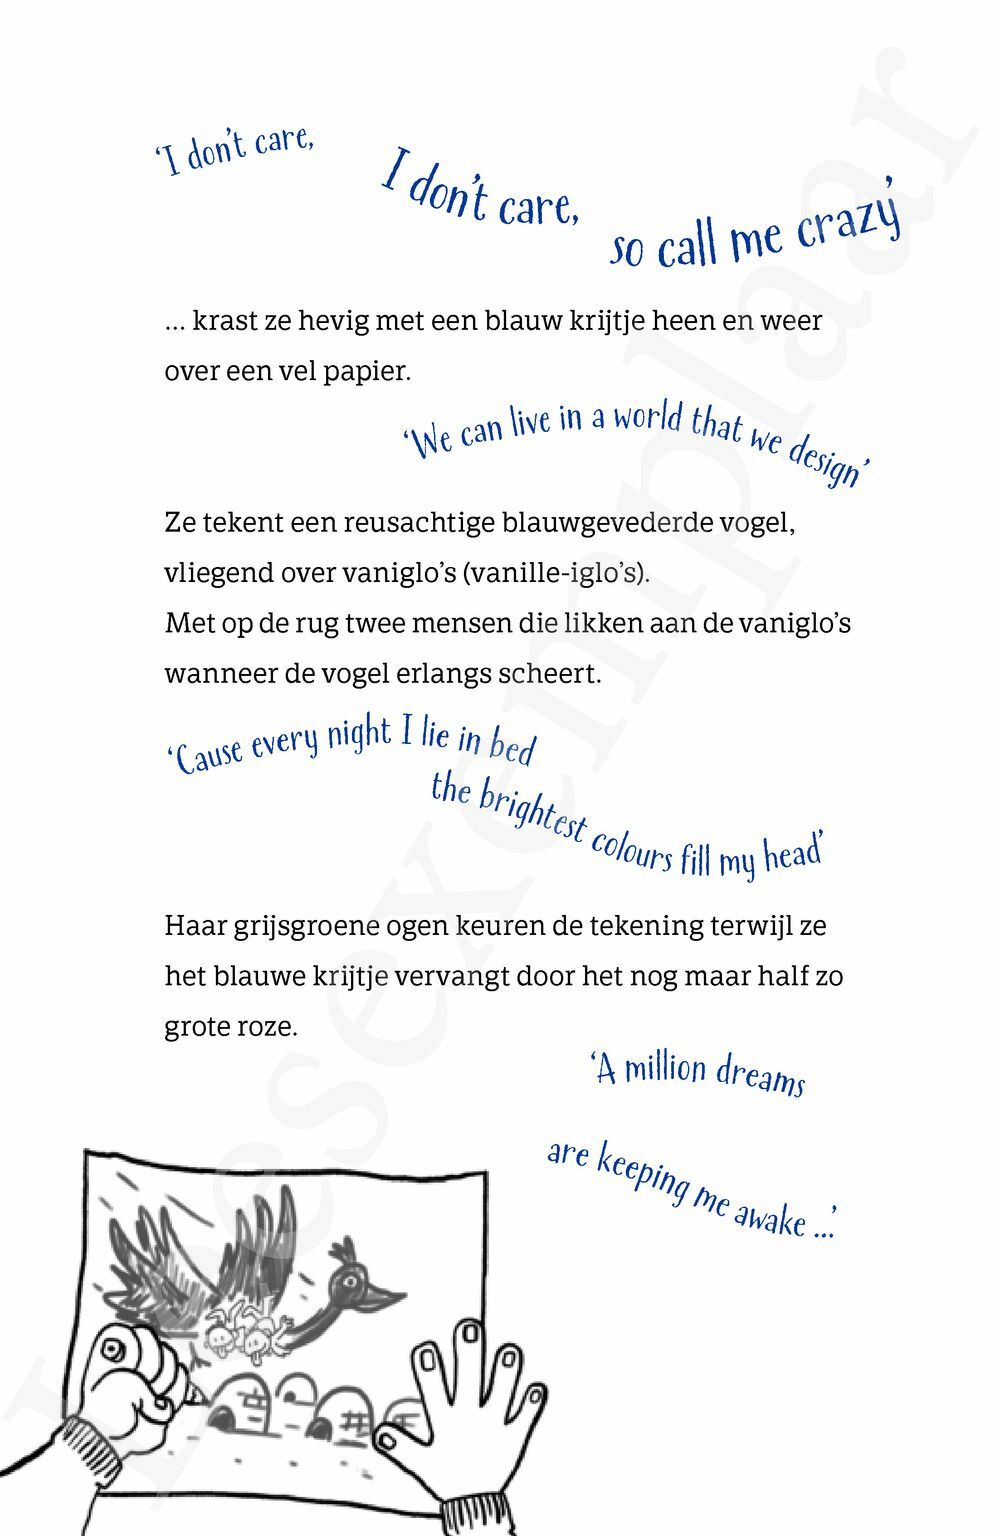 ‘I don’t care,
I don’t care,
so call me crazy’
... krast ze hevig met een blauw krijtje heen en weer
over een vel papier.
‘We can live in a world that we design’
Ze tekent een reusachtige blauwgevederde vogel,
vliegend over vaniglo’s (vanille-iglo’s).
Met op de rug twee mensen die likken aan de vaniglo’s
wanneer de vogel erlangs scheert.
‘Cause every night I lie in bed
the brightest colours fill my head’
Haar grijsgroene ogen keuren de tekening terwijl ze
het blauwe krijtje vervangt door het nog maar half zo
grote roze.
‘A million dreams
are keeping me awake ...’
Leesexemplaar